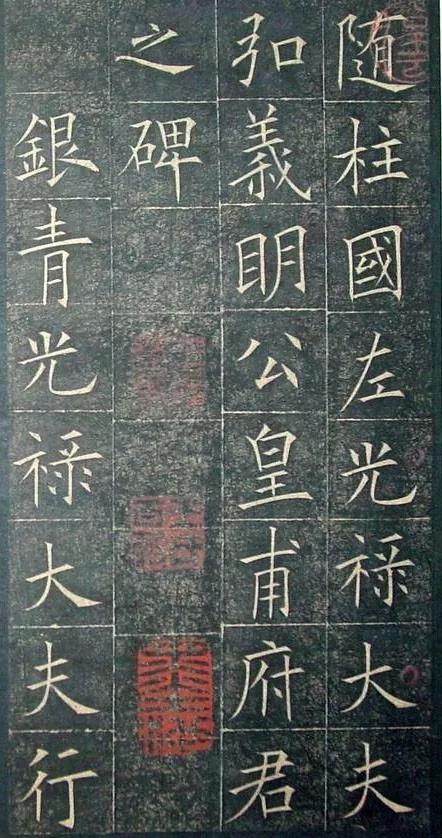 随柱國左光祿大夫
弘義明公皇甫府君
之碑
銀青光祿大夫行